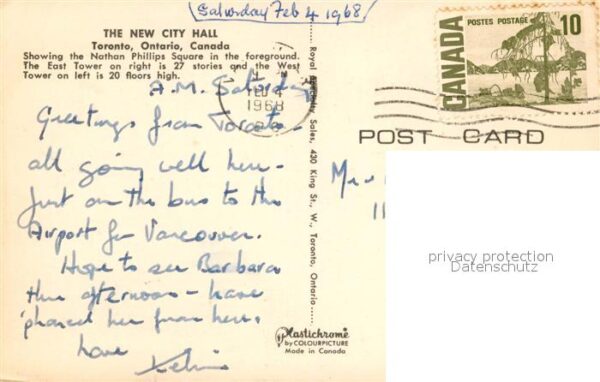 (Saturday Feb 4 1968)
THE NEW CITY HALL
Toronto, Ontario, Canada
Showing the Nathan Phillips Square in the foreground.
The East Tower on right is 27 stories and the West
Tower on left is 20 floors high.
A.M. Saturday
Greetings from Toronto -
all going well here -
just on the bus to the
Airport for Vancouver.
Hope to see Barbara
this afternoon - have
'phoned her from here.
Love
FEB 4
1968
Royal Specialty Sales, 430 King St., W., Toronto, Ontario
Plastichrome
by COLOURPICTURE
Made in Canada
CANADA
POSTES POSTAGE
10
POST CARD
privacy protection
Datenschutz